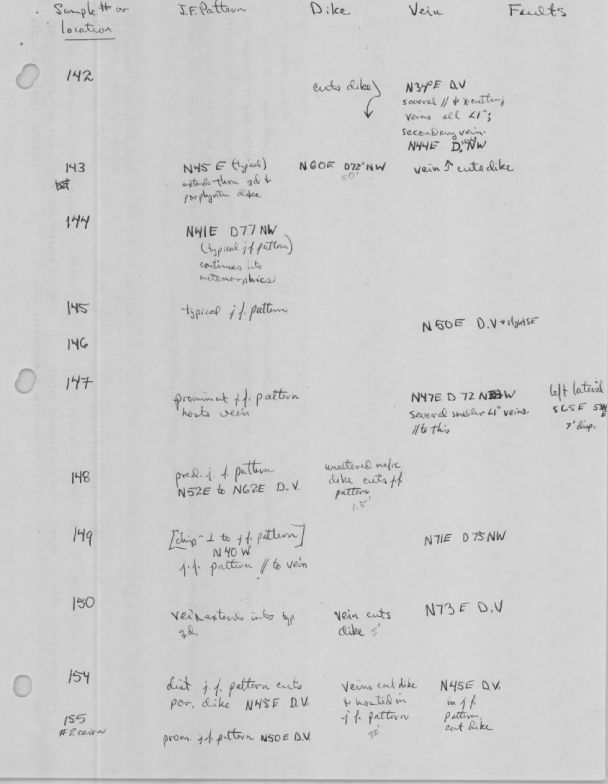 Sample # or J.F. Pattern Dike Vein Faults
location
142 cuts dike) N34°E D.V
several // & x-cutting
veins all <1";
secondary vein
N44E D. NW
143 N45 E (typical) N60E D72°NW vein ↑ cuts dike
extends thru gd & 50'
porphyritic dike
144 N41E D77 NW
(typical jf pattern)
continues into
metamorphics
145 typical j.f. pattern N50E D.V → slight SE
146
147 prominent j.f. pattern N47E D 72 NW left lateral
hosts vein several smaller <1" veins
// to this 7' disp.
148 pred. j. f. pattern unaltered mafic
N52E to N62E D.V. dike cuts jf
pattern
1.5'
149 [chip - ⊥ to j.f. pattern] N71E D75NW
N40W
j.f. pattern // to vein
150 vein extends into typ Vein cuts N73E D.V
g.d. dike 5'
154 dist j.f. pattern cuts Veins cut dike N45E D.V.
por. dike N45E D.V. & hosted in in j.f.
j.f. pattern pattern
155 cut dike
#2 cairn prom. j.f. pattern N50E D.V.